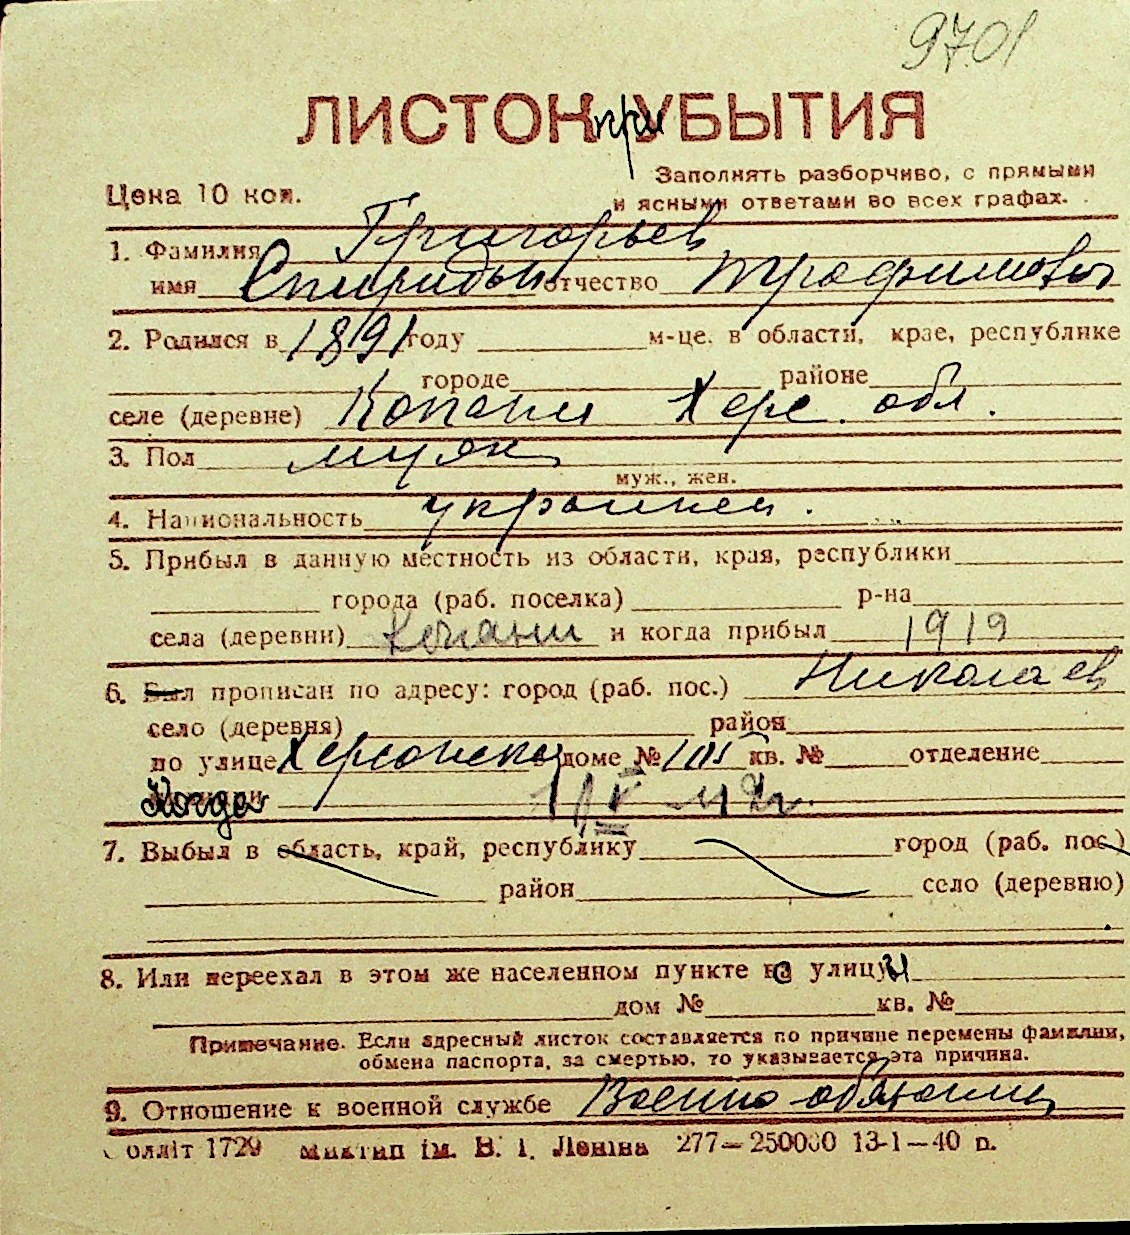 9701
ЛИСТОК при УБЫТИЯ
Цена 10 коп. Заполнять разборчиво, с прямыми
и ясными ответами во всех графах.
1. Фамилия Григорьев
имя Спиридон отчество Трофимович
2. Родился в 1891 году м-це, в области, крае, республике
городе районе
селе (деревне) Копани Херс. обл.
3. Пол муж
муж., жен.
4. Национальность украинец.
5. Прибыл в данную местность из области, края, республики
города (раб. поселка) р-на
села (деревни) Копани и когда прибыл 1919
6. Был прописан по адресу: город (раб. пос.) Николаев
село (деревня) район
по улице Херсонской доме № кв. № отделение
Когда
7. Выбыл в область, край, республику город (раб. пос.)
район село (деревню)
8. Или переехал в этом же населенном пункте с улицы
дом № кв. №
Примечание. Если адресный листок составляется по причине перемены фамилии,
обмена паспорта, за смертью, то указывается эта причина.
9. Отношение к военной службе Военно-обязанный
олліт 1729 ім. В. І. Леніна 277—250000 13-1—40 п.